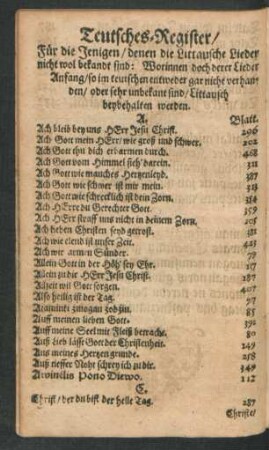 Teutsches-Register/
Für die Jenigen/ denen die Littausche Lieder
nicht wol bekandt sind: Worinnen doch derer Lieder
Anfang/ so im teutschen entweder gar nicht verhan-
den/ oder sehr unbekant sind/ Littausch
beybehalten werden.
A. Blatt.
Ach bleib bey uns HErr Jesu Christ. 296
Ach Gott mein HErr/ wie groß und schwer. 202
Ach Gott thu dich erbarmen durch. 468
Ach Gott vom Himmel sieh' darein. 311
Ach Gott wie manches Hertzenleyd. 387
Ach Gott wie schwer ist mir mein. 313
Ach Gott wie schrecklich ist dein Zorn. 384
Ach HErr du Gerechter Gott. 359
Ach HErr straff uns nicht in deinem Zorn. 205
Ach lieben Christen seyd getrost. 351
Ach wie elend ist unser Zeit. 423
Ach wir armen Sünder.
Allein Gott in der Höh' sey Ehr.
Allein zu dir HErr Jesu Christ.
Allzeit wil Gott sorgen.
Also heilig ist der Tag.
Auff meinen lieben Gott.
Auff meine Seel mit Fleiß betracht. 80
Auß Lieb lässt Gott der Christenheit. 249
Aus meines Hertzen grunde. 258
Auß tieffer Noht schrey ich zu dir. 349
Awinelin Pono Diewo. 112
C.
Christ/ der du bist der helle Tag. 287
Christe/